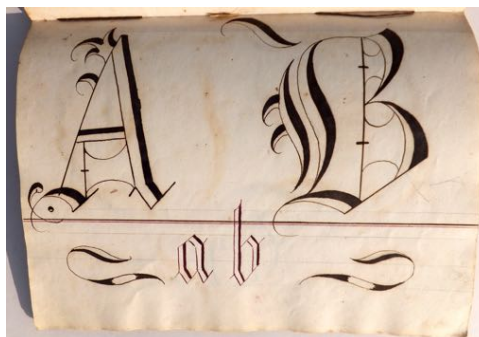 A B
a b